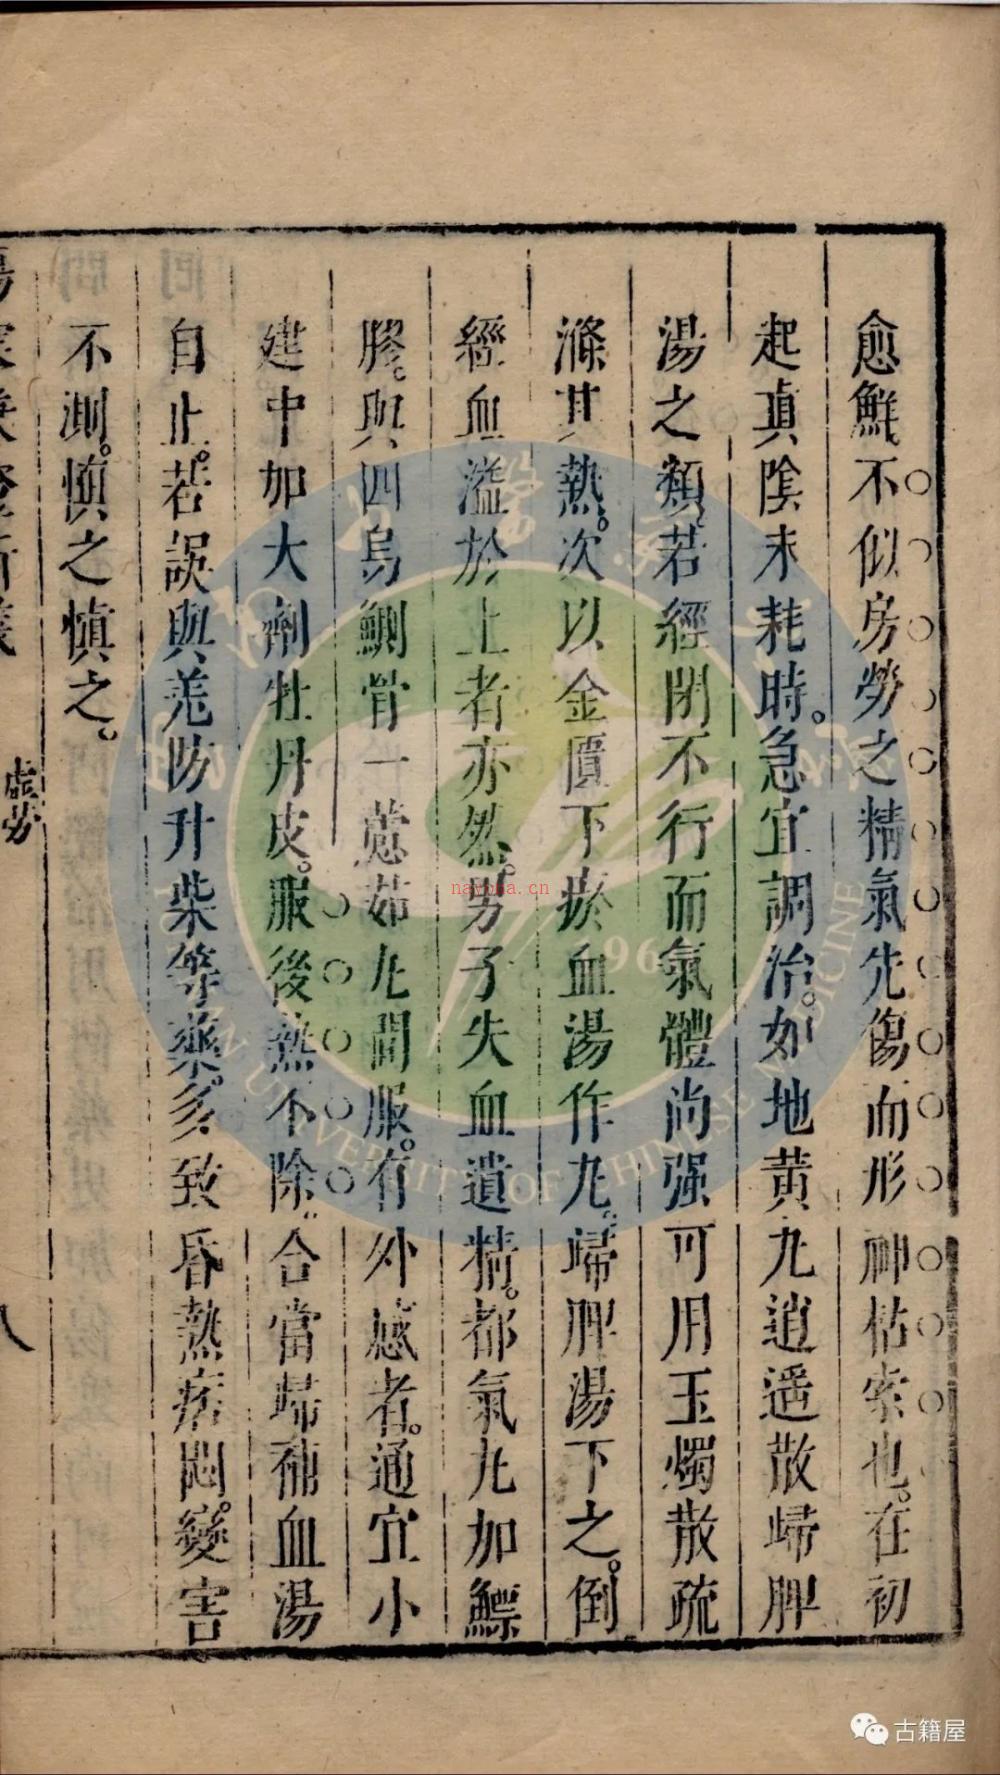 愈鮮不似房勞之精氣先傷而形神枯索也。在初
起真陰未耗時。急宜調治。如地黃丸逍遥散歸脾
湯之類。若經閉不行而氣體尚强可用玉燭散疏
滌其熱。次以金匱下瘀血湯作丸。歸脾湯下之。倒
經血溢於上者亦然。男子失血遺精。都氣丸加鰾
膠。與四烏鰂骨一藘茹丸間服。有外感者。通宜小
建中加大劑牡丹皮。服後熱不除。合當歸補血湯
自止。若誤與羌防升柴等藥。多致昏熱痞悶。變害
不測。慎之慎之。
虛勞
八
nayona.cn
UNIVERSITY OF CHINESE MEDICINE
古籍屋